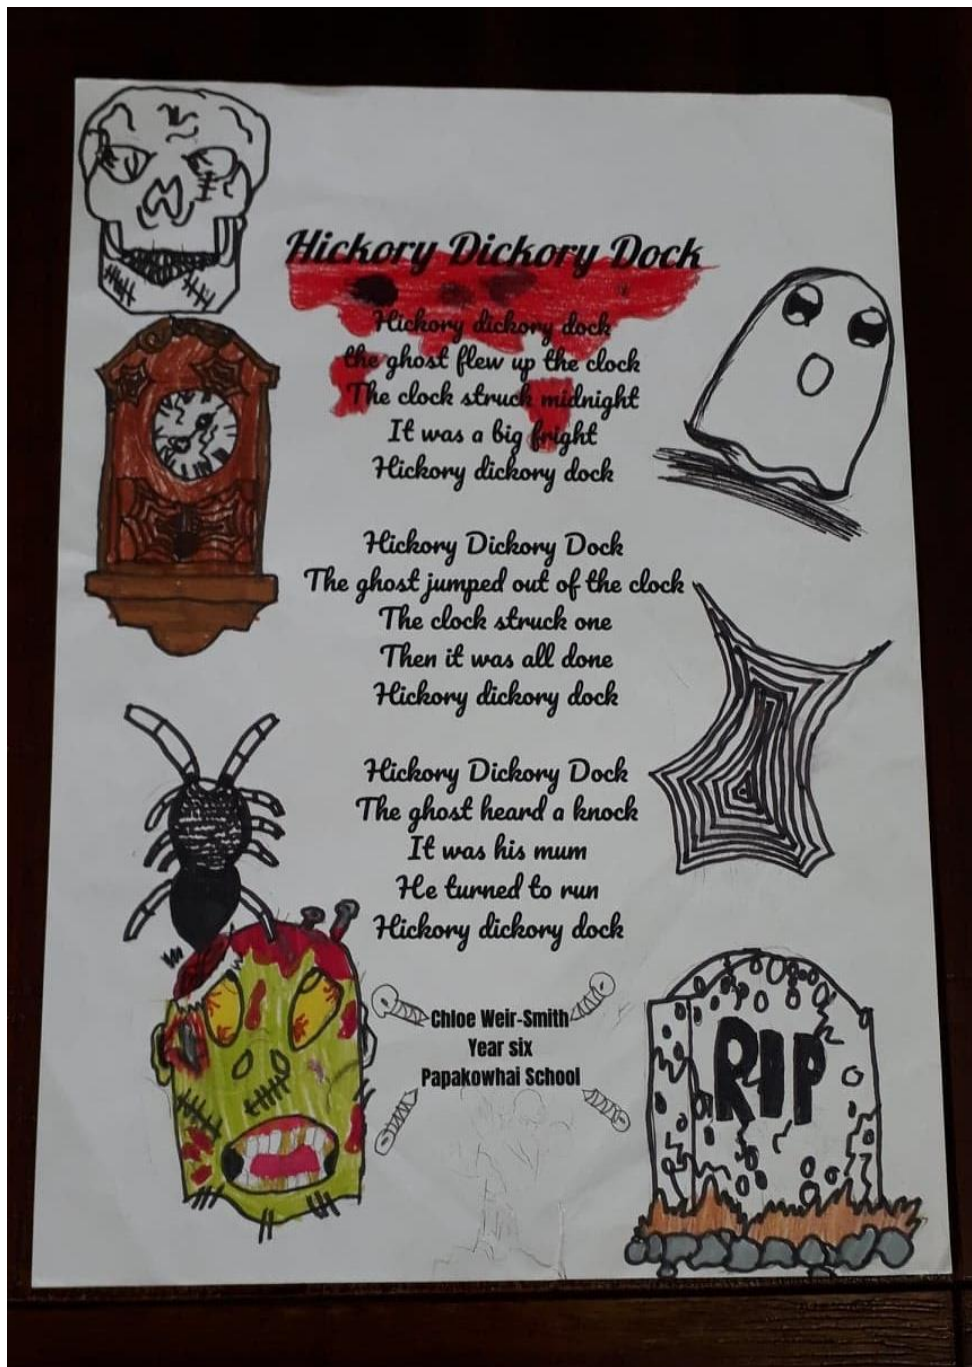 Hickory Dickory Dock
Hickory dickory dock
the ghost flew up the clock
The clock struck midnight
It was a big fright
Hickory dickory dock
Hickory Dickory Dock
The ghost jumped out of the clock
The clock struck one
Then it was all done
Hickory dickory dock
Hickory Dickory Dock
The ghost heard a knock
It was his mum
He turned to run
Hickory dickory dock
Chloe Weir-Smith
Year six
Papakowhai School
RIP